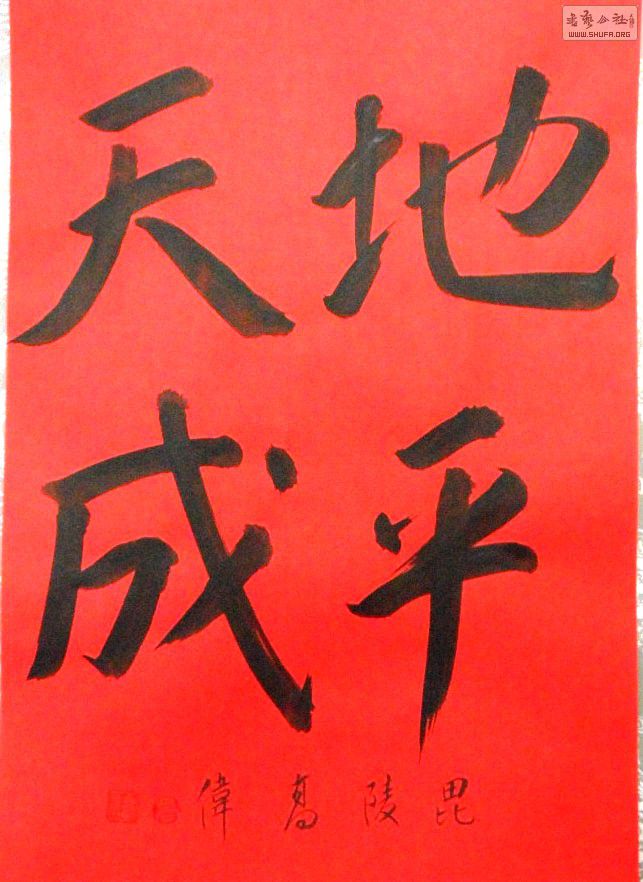 地平
天成
毘陵高偉
書藝公社
WWW.SHUFA.ORG